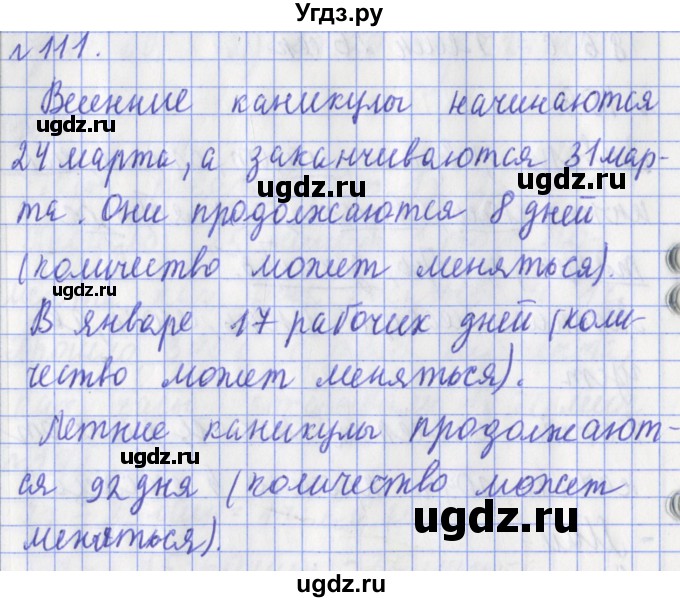 Угдз.ру
№111.
Весенние каникулы начинаются
ugdz.ru
24 марта, а заканчиваются 31 мар-
ugdz.ru
та. Они продолжаются 8 дней
(количество может меняться).
ugdz.ru
ugdz.ru
В январе 17 рабочих дней (коли-
чество может меняться).
Летние каникулы продолжают-
ugdz.ru
ся 92 дня (количество может
ugdz.ru
меняться).
ugdz.ru